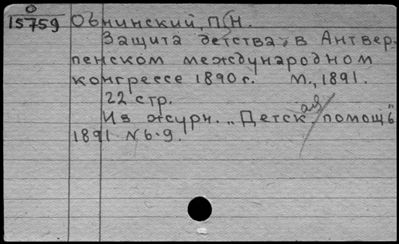 О
15759
Обнинский, П. Н.
Защита детства, в Антвер-
пенском международном
конгрессе 1890 г. М., 1891.
22 стр.
Из журн. „Детская помощь"
1891 N 6-9.